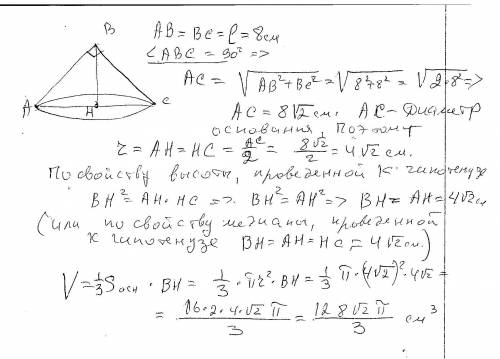 B
A
H
C
AB = BC = l = 8 см
∠ABC = 90° =>
AC = √(AB² + BC²) = √(8² + 8²) = √(2·8²) =>
AC = 8√2 см. AC – Диаметр
основания, Поэтому
r = AH = HC = AC/2 = 8√2/2 = 4√2 см.
По свойству высоты, проведенной к гипотенузе
BH² = AH·HC => BH² = AH² => BH = AH = 4√2 см
(или по свойству медианы, проведенной
к гипотенузе BH = AH = HC = 4√2 см.)
V = 1/3 Sосн · BH = 1/3 · πr² · BH = 1/3 π · (4√2)² · 4√2 =
= 16·2·4·√2 π/3 = 128√2 π/3 см³